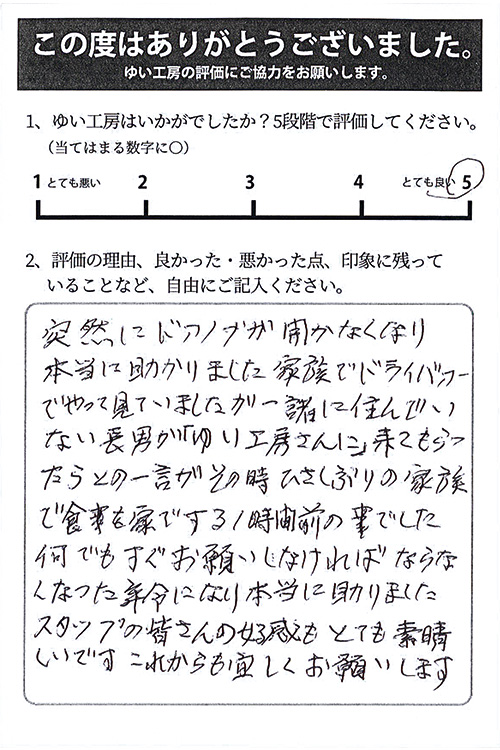 この度はありがとうございました。
ゆい工房の評価にご協力をお願いします。
1、ゆい工房はいかがでしたか？5段階で評価してください。
（当てはまる数字に〇）
1 とても悪い 2 3 4 とても良い 5
2、評価の理由、良かった・悪かった点、印象に残って
いることなど、自由にご記入ください。
突然にドアノブが開かなくなり
本当に助かりました 家族でドライバー
でやって見ていましたが一諸に住んでい
ない長男が「ゆい工房さんに」来てもらっ
たらとの一言が その時 ひさしぶりの家族
で食事を家でする1時間前の事でした
何でもすぐお願いしなければならな
くなった年令になり本当に助りました
スタッフの皆さんの好感もとても素晴
しいです これからも宜しくお願いします